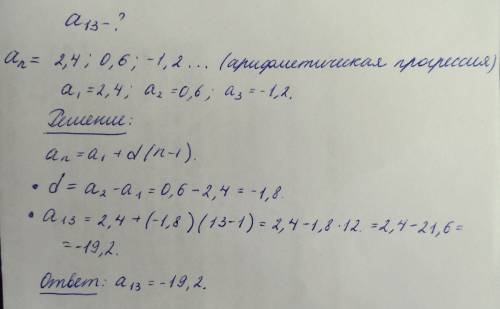 a₁₃ - ?
aₙ = 2,4; 0,6; -1,2 ... (арифметическая прогрессия)
a₁ = 2,4; a₂ = 0,6; a₃ = -1,2.
Решение:
aₙ = a₁ + d(n-1).
• d = a₂ - a₁ = 0,6 - 2,4 = -1,8.
• a₁₃ = 2,4 + (-1,8)(13-1) = 2,4 - 1,8 · 12. = 2,4 - 21,6 =
= -19,2.
Ответ: a₁₃ = -19,2.